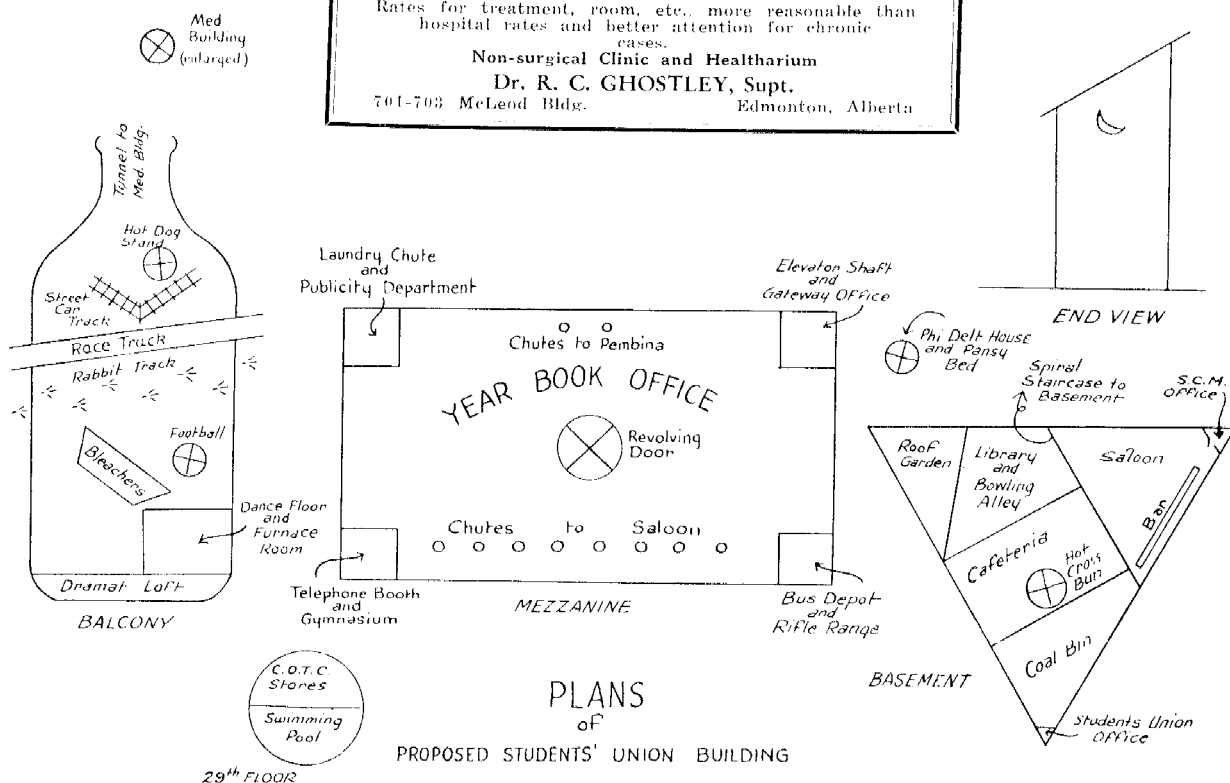 Rates for treatment, room, etc., more reasonable than
hospital rates and better attention for chronic
cases.
Non-surgical Clinic and Healtharium
Dr. R. C. GHOSTLEY, Supt.
701-703 McLeod Bldg. Edmonton, Alberta
Med
Building
(enlarged)
Tunnel to
Med. Bldg.
Hot Dog
Stand
Street
Car
Track
Race Track
Rabbit Track
Football
Bleachers
Dance Floor
and
Furnace
Room
Dramat Loft
BALCONY
Laundry Chute
and
Publicity Department
Elevator Shaft
and
Gateway Office
Chutes to Pembina
YEAR BOOK OFFICE
Revolving
Door
Chutes to Saloon
Telephone Booth
and
Gymnasium
MEZZANINE
Bus Depot
and
Rifle Range
END VIEW
Phi Delt House
and Pansy
Bed
Spiral
Staircase to
Basement
S.C.M.
OFFICE
Roof
Garden
Library
and
Bowling
Alley
Saloon
Bar
Cafeteria
Hot
Cross
Bun
Coal Bin
BASEMENT
Students Union
Office
C.O.T.C.
Stores
Swimming
Pool
29th FLOOR
PLANS
of
PROPOSED STUDENTS' UNION BUILDING